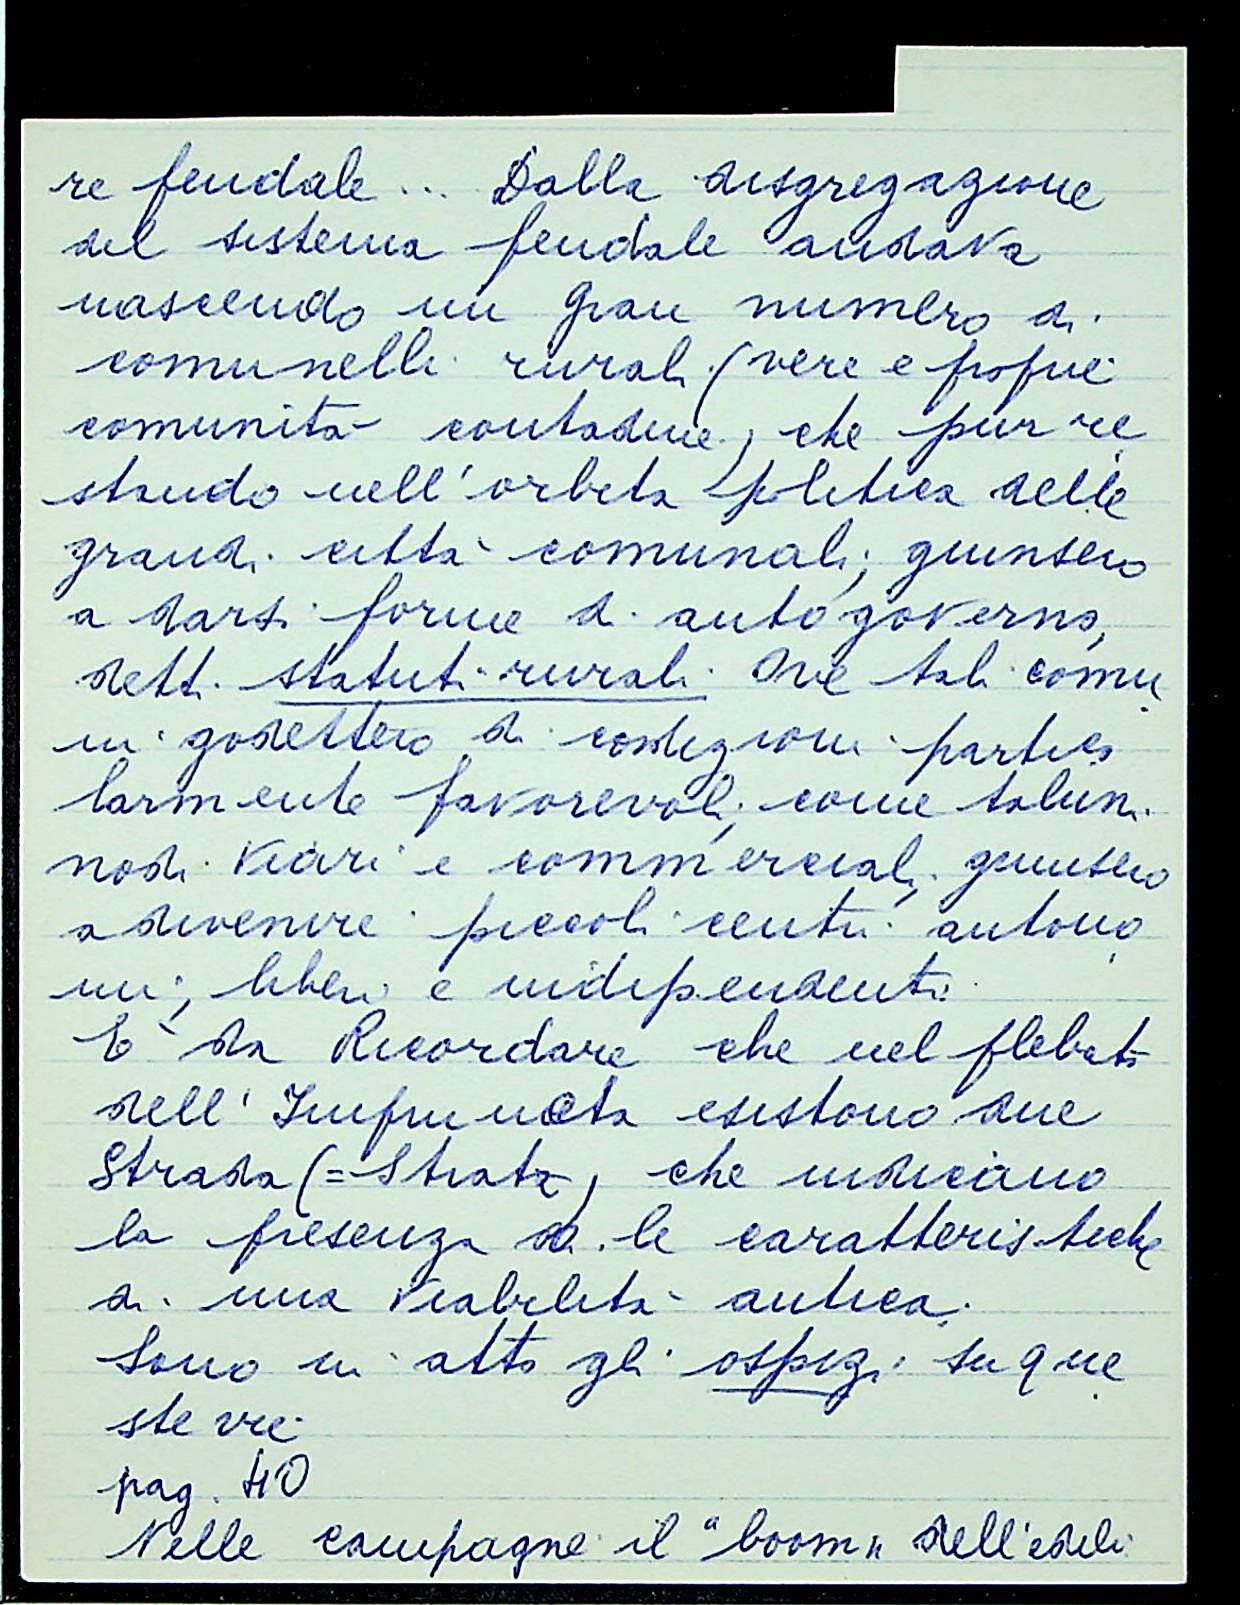 re feudale... Dalla disgregazione
del sistema feudale andava
nascendo un gran numero di
comunelli rurali (vere e proprie
comunità contadine) che pur re
stando nell'orbita politica delle
grandi città comunali, giunsero
a darsi forme di autogoverno,
detti statuti rurali. Ove tali comu
ni godettero di condizioni partico
larmente favorevoli, come taluni
nodi viari e commerciali, giunsero
a divenire piccoli centri autono
mi, liberi e indipendenti.
E' da Ricordare che nel plebato
dell'Impruneta esistono due
Strada (= Strata) che indicano
la presenza le caratteristiche
di una viabilità antica.
Sono in atto gli ospizi su que
ste vie
pag. 40
Nelle campagne il "boom" dell'edili